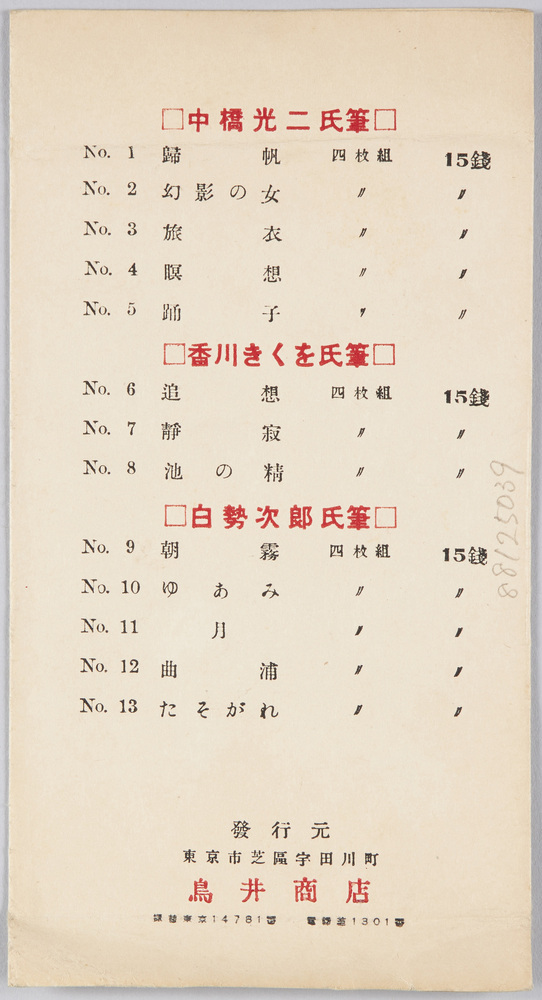 □中橋光二氏筆□
No. 1 歸帆 四枚組 15錢
No. 2 幻影の女 〃 〃
No. 3 旅衣 〃 〃
No. 4 瞑想 〃 〃
No. 5 踊子 〃 〃
□香川きくを氏筆□
No. 6 追想 四枚組 15錢
No. 7 靜寂 〃 〃
No. 8 池の精 〃 〃
□白勢次郎氏筆□
No. 9 朝霧 四枚組 15錢
No. 10 ゆあみ 〃 〃
No. 11 月 〃 〃
No. 12 曲浦 〃 〃
No. 13 たそがれ 〃 〃
發行元
東京市芝區宇田川町
鳥井商店
振替東京14781番 電話芝1301番
88125039